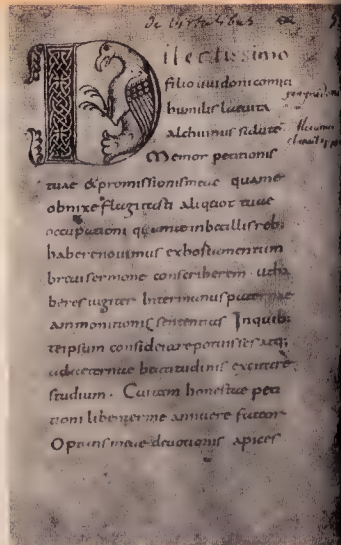 Dilectissimo
filio uuidoni comiti
humilis leuita
alchuinus salute
Memor petitionis
tuae & promissionis meae quame
obnixe flagitasti aliquot tuae
occupationi quam in bellicis reb;
habere nouimus exhortamentum
breui sermone conscriberem. ut ha
beres iugiter inter manus paternae
ammonitionis sententias Inquib;
teipsum considerare potuisses atq;
ad aeternae beatitudinis excitare
studium. Cui tam honestae peti
tioni libenter me annuere fateor
Optans meae deuotionis apices